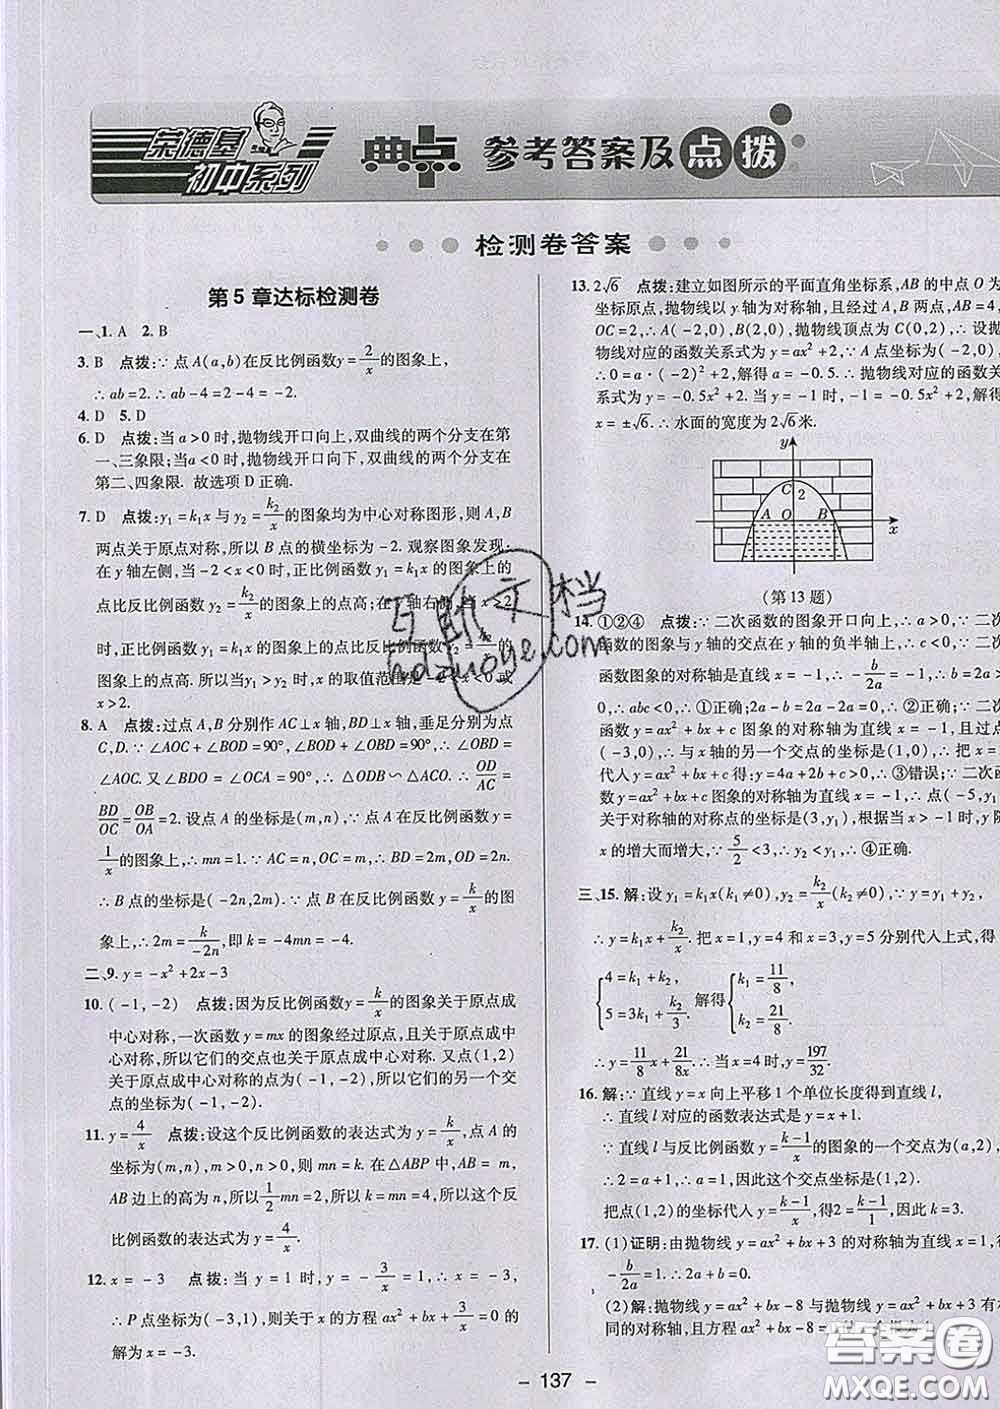 荣德基
初中系列
典点 参考答案及点拨
检测卷答案
第5章达标检测卷
一、1. A 2. B
3. B 点拨:∵点A(a,b)在反比例函数y=2/x的图象上,
∴ab=2.∴ab-4=2-4=-2.
4. D 5. D
6. D 点拨:当a>0时,抛物线开口向上,双曲线的两个分支在第
一、三象限;当a<0时,抛物线开口向下,双曲线的两个分支在
第二、四象限. 故选项D正确.
7. D 点拨:y₁=k₁x与y₂=k₂/x的图象均为中心对称图形,则A,B
两点关于原点对称,所以B点的横坐标为-2. 观察图象发现:
在y轴左侧,当-2<x<0时,正比例函数y₁=k₁x的图象上的
点比反比例函数y₂=k₂/x的图象上的点高;在y轴右侧,当x>2
时,正比例函数y₁=k₁x的图象上的点比反比例函数y₂=k₂/x的
图象上的点高. 所以当y₁>y₂时,x的取值范围是-2<x<0或
x>2.
8. A 点拨:过点A,B分别作AC⊥x轴,BD⊥x轴,垂足分别为点
C,D.∵∠AOC+∠BOD=90°,∠BOD+∠OBD=90°,∴∠OBD=
∠AOC.又∠BDO=∠OCA=90°,∴△ODB∽△ACO.∴OD/AC=
BD/OC=OB/OA=2. 设点A的坐标是(m,n),∵点A在反比例函数y=
1/x的图象上,∴mn=1.∵AC=n,OC=m,∴BD=2m,OD=2n.
∴B点的坐标是(-2n,2m).∵点B在反比例函数y=k/x的图
象上,∴2m=k/-2n,即k=-4mn=-4.
二、9. y=-x²+2x-3
10. (-1,-2) 点拨:因为反比例函数y=k/x的图象关于原点成
中心对称,一次函数y=mx的图象经过原点,且关于原点成中
心对称,所以它们的交点也关于原点成中心对称. 又点(1,2)
关于原点成中心对称的点为(-1,-2),所以它们的另一个交
点的坐标为(-1,-2).
11. y=4/x 点拨:设这个反比例函数的表达式为y=k/x,点A的
坐标为(m,n),则k/m=n,即mn=k. 在△ABP中,AB=m,
AB边上的高为n,所以1/2mn=2,则mn=4,所以k=4,所以这个反
比例函数的表达式为y=4/x.
12. x=-3 点拨:当y=1时,-3/x=1,解得x=-3,
∴P点坐标为(-3,1),则关于x的方程ax²+bx+3/x=0的
解为x=-3.
13. 2√6 点拨:建立如图所示的平面直角坐标系,AB的中点O为
坐标原点,抛物线以y轴为对称轴,且经过A,B两点,AB=4,
OC=2,∴A(-2,0),B(2,0),抛物线顶点为C(0,2),∴设抛
物线对应的函数关系式为y=ax²+2,∵A点坐标为(-2,0),
∴0=a·(-2)²+2,解得a=-0.5.∴抛物线对应的函数关
系式为y=-0.5x²+2. 当y=-1时,-1=-0.5x²+2,解得
x=±√6.∴水面的宽度为2√6米.
y
C 2
A O B x
(第13题)
14. ①②④ 点拨:∵二次函数的图象开口向上,∴a>0,∵二次
函数的图象与y轴的交点在y轴的负半轴上,∴c<0,∵二次
函数图象的对称轴是直线x=-1,∴-b/2a=-1,∴b=2a>
0,∴abc<0,∴①正确;2a-b=2a-2a=0,∴②正确;∵二次
函数y=ax²+bx+c图象的对称轴为直线x=-1,且过点
(-3,0),∴与x轴的另一个交点的坐标是(1,0),∴把x=2
代入y=ax²+bx+c得:y=4a+2b+c>0,∴③错误;∵二次函
数y=ax²+bx+c图象的对称轴为直线x=-1,∴点(-5,y₁)
关于对称轴的对称点的坐标是(3,y₁),根据当x>-1时,y随
x的增大而增大,∵5/2<3,∴y₂<y₁,∴④正确.
三、15. 解:设y₁=k₁x(k₁≠0),y₂=k₂/x(k₂≠0),∵y=y₁+y₂,
∴y=k₁x+k₂/x. 把x=1,y=4和x=3,y=5分别代入上式,得
4=k₁+k₂, 5=3k₁+k₂/3. 解得 k₁=11/8, k₂=21/8.
∴y=11/8x+21/8x.∴当x=4时,y=197/32.
16. 解:∵直线y=x向上平移1个单位长度得到直线l,
∴直线l对应的函数表达式是y=x+1.
∵直线l与反比例函数y=k-1/x的图象的一个交点为(a,2),
∴2=a+1,∴a=1,因此这个交点坐标为(1,2).
把点(1,2)的坐标代入y=k-1/x,得2=k-1/1,因此k=3.
17. (1)证明:由抛物线y=ax²+bx+3的对称轴为直线x=1,得
-b/2a=1.∴2a+b=0.
(2)解:抛物线y=ax²+bx-8与抛物线y=ax²+bx+3有相
同的对称轴,且方程ax²+bx-8=0
- 137 -
互助文档
hdzuoye.com
答案圈
MXQE.COM